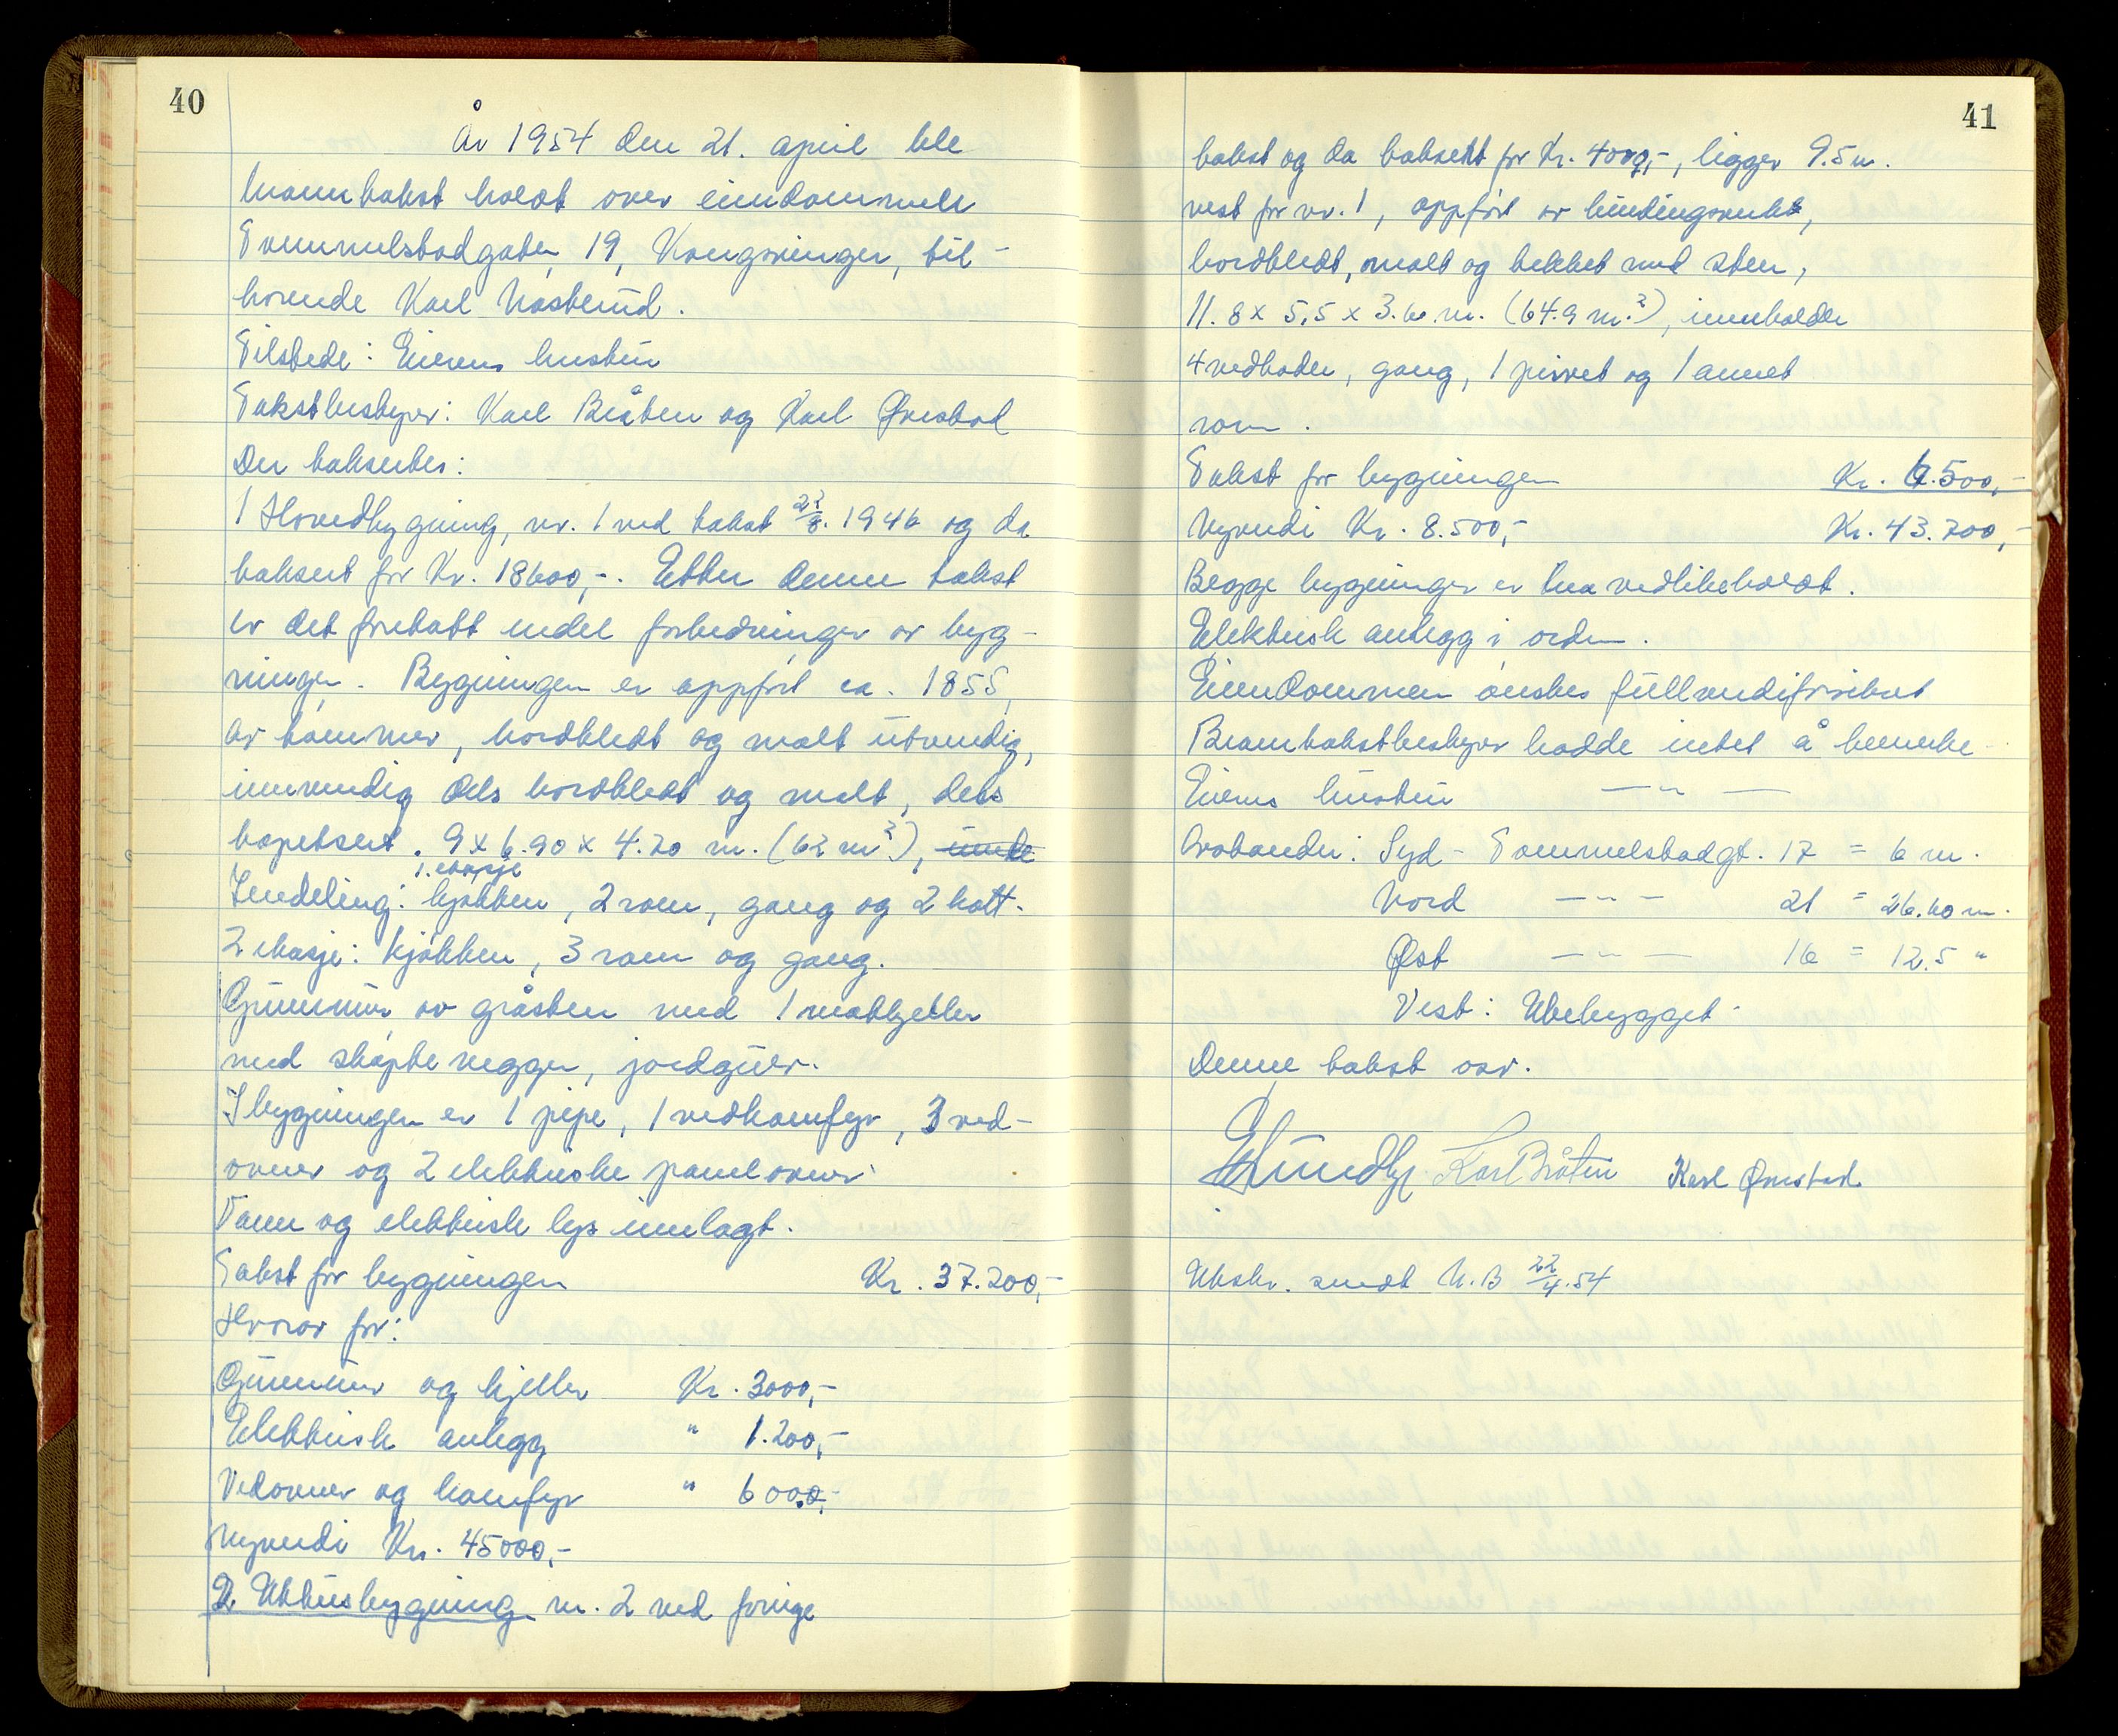 40
År 1954 den 21. april ble
branntakst holdt over eiendommen
Tommelstadgaten 19, Kongsvinger, til-
hørende Karl Nasterud.
Tilstede: Eierens hustru
Takstbestyrer: Karl Bråten og Karl Ørnstad
Der taksertes:
1 Hovedbygning, nr. 1 ved takst 22/8. 1946 og da
taksert for Kr. 18600,-. Etter denne takst
er det foretatt endel forbedringer av byg-
ningen. Bygningen er oppført ca. 1855,
av tømmer, bordkledt og malt utvendig,
innvendig dels bordkledt og malt, dels
tapetsert. 9 x 6.90 x 4.20 m. (62 m²), inde
1. etasje
Inndeling: kjøkken, 2 rom, gang og 2 kott.
2 etasje: kjøkken, 3 rom og gang.
Grunnmur av gråsten med 1 matkjeller
med støpte vegger, jordgulv.
I bygningen er 1 pipe, 1 vedkomfyr, 3 ved-
ovner og 2 elektriske panelovner.
Vann og elektrisk lys innlagt.
Takst for bygningen Kr. 37.200,-
Hvorav for:
Grunnmur og kjeller Kr. 3000,-
Elektrisk anlegg " 1.200,-
Vedovner og komfyr " 600.0,-
Nyverdi Kr. 45000,-
2. Uthusbygning nr. 2 ved forrige
41
takst og da taksert for Kr. 4000,-, ligger 9.5 m.
vest for nr. 1, oppført av bindingsverk,
bordkledt, malt og tekket med sten,
11.8 x 5.5 x 3.60 m. (64.9 m.²), inneholder
4 vedboder, gang, 1 privet og 1 annet
rom.
Takst for bygningen Kr. 6.500,-
Nyverdi Kr. 8.500,- Kr. 43.700,-
Begge bygninger er bra vedlikeholdt.
Elektrisk anlegg i orden.
Eiendommen ønskes fullverdiforsikret
Branntakstbestyrer hadde intet å bemerke
Eierens hustru — " —
Avstander: Syd - Tommelstadgt. 17 = 6 m.
Nord — " — 21 = 26.60 m.
Øst — " — 16 = 12.5 "
Vest: Ubebygget
Denne takst osv.
Karl Bråten Karl Ørnstad
Utskr. sendt N.B 22/4.54